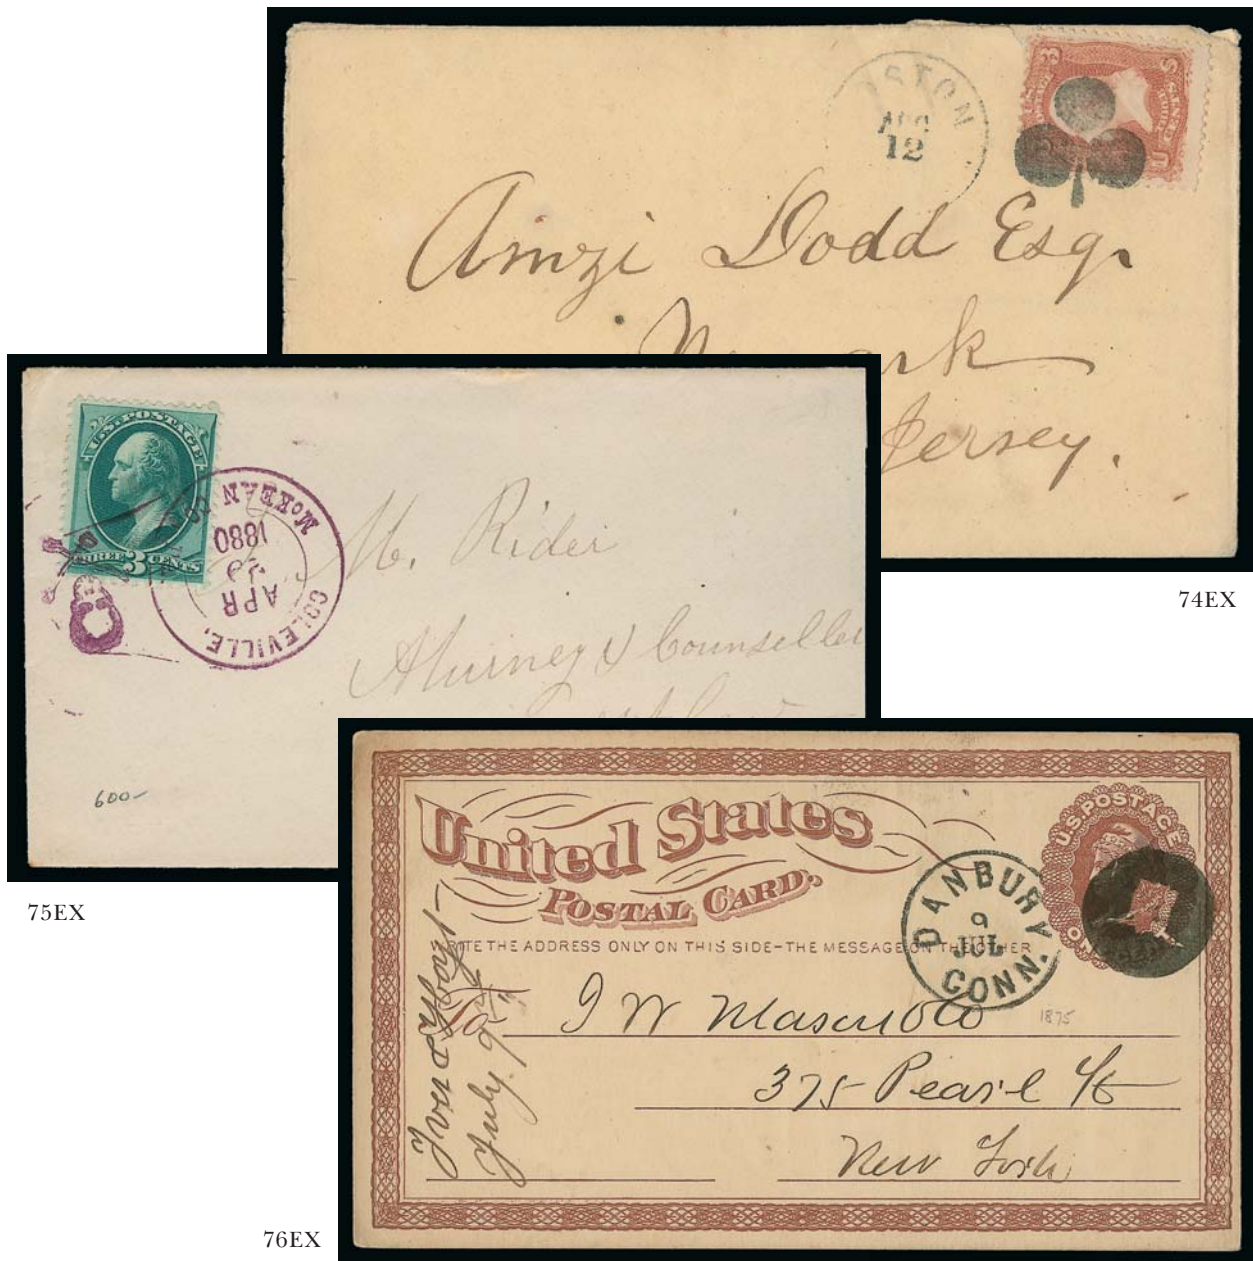 STON
AUG
12
3
U.S.
Amzi Dodd Esq.
Newark
Jersey.
74EX
U.S. POSTAGE
THREE 3 CENTS
COLEVILLE,
McKEAN CO
1880
APR
M. Rider
Attorney & Counsellor
at Law
600-
75EX
United States
POSTAL CARD.
WRITE THE ADDRESS ONLY ON THIS SIDE-THE MESSAGE ON THE OTHER
U.S. POSTAGE
ONE
DANBURY
9
JUL
CONN.
1875
To
J W Mason & Co
375 Pearl St
New York
July 9
76EX